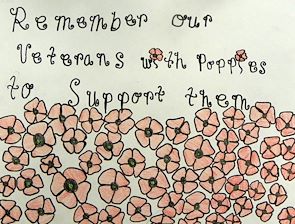 Remember our
Veterans with Poppies
to Support them